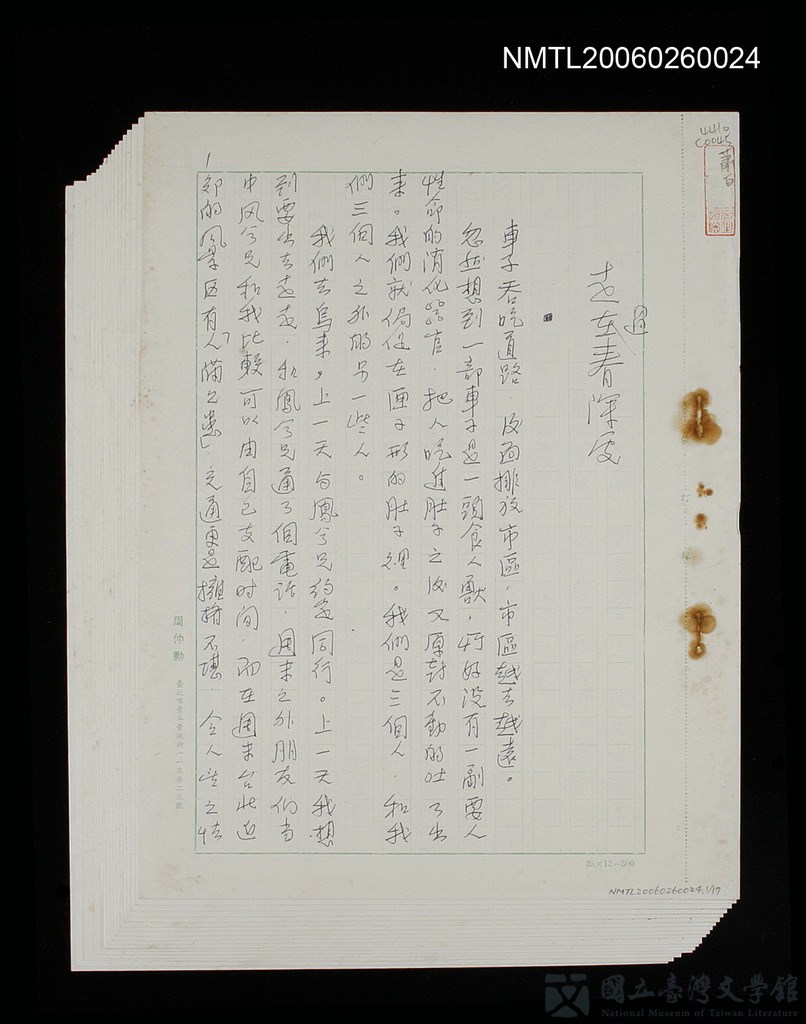 NMTL20060260024
4410
C0045
蕭白
走過春深處
車子吞吃道路,後面排放市區,市區越去越遠。
忽然想到一部車子是一頭食人獸,好好沒有一副要人
性命的消化器官,把人吃進肚子之後又原封不動的吐了出
來。我們就侷促在匣子形的肚子裡。我們是三個人,和我
們三個人之外的另一些人。
我們去烏來,上一天與鳳兮兄約定同行。上一天我想
到要出去走走,和鳳兮兄通了個電話,週末之外朋友們當
中鳳兮兄和我比較可以由自己支配时间,而在週末台北近
郊的風景區有「人滿之患」,交通更是擁擠不堪,令人望之怯
1
周仲勳
25×12=300
NMTL20060260024,1/17
國立臺灣文學館
National Museum of Taiwan Literature